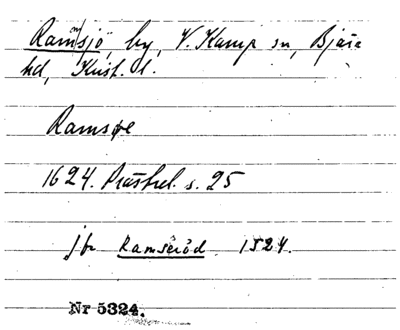 Ramsjö, by, V. Karup sn, Bjäre
hd, Krist. l.
Ramsøe
1624. Prästrel. s. 25
jfr Ramseröd 1524.
Nr 5324.